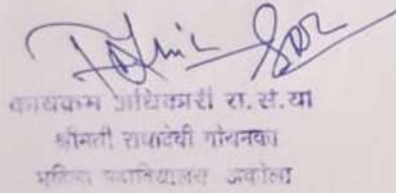 कार्यक्रम अधिकारी रा. से. या
श्रीमती राधादेवी गोयनका
महिला महाविद्यालय अकोला